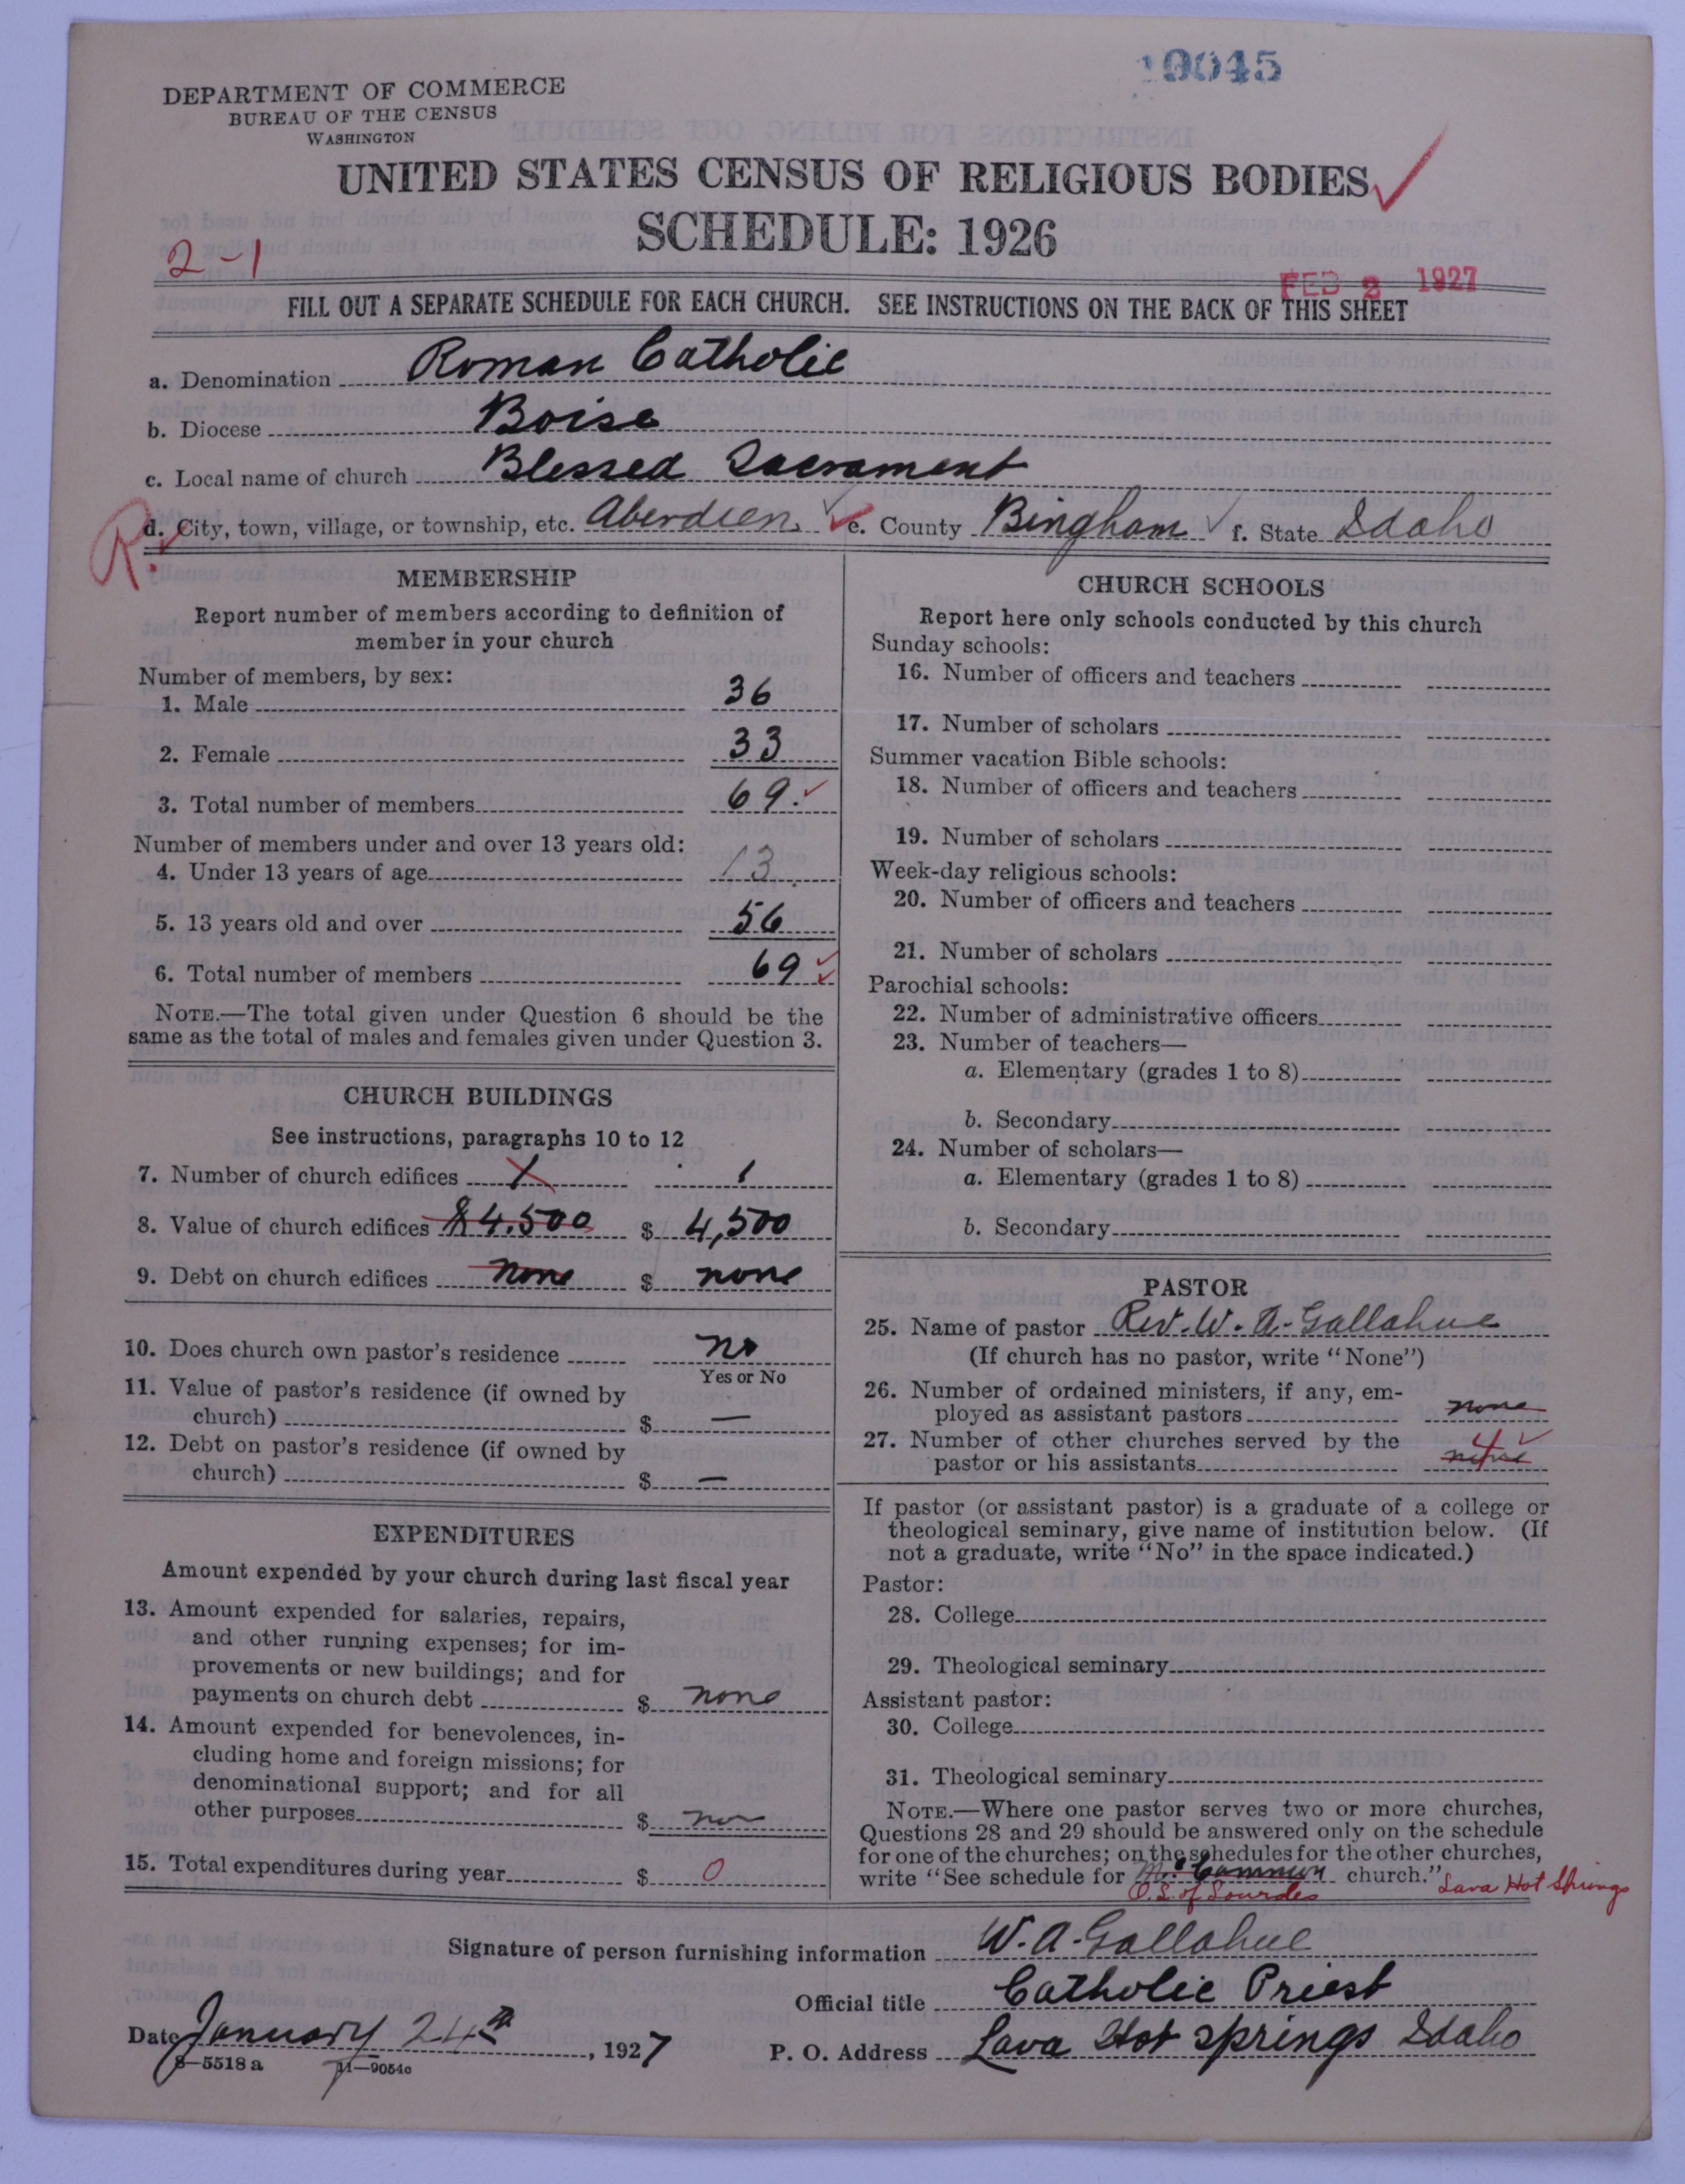 19045
DEPARTMENT OF COMMERCE
BUREAU OF THE CENSUS
WASHINGTON
UNITED STATES CENSUS OF RELIGIOUS BODIES
SCHEDULE: 1926
2-1
FEB 2 1927
FILL OUT A SEPARATE SCHEDULE FOR EACH CHURCH. SEE INSTRUCTIONS ON THE BACK OF THIS SHEET
a. Denomination Roman Catholic
b. Diocese Boise
c. Local name of church Blessed Sacrament
R. d. City, town, village, or township, etc. Aberdeen, e. County Bingham f. State Idaho
MEMBERSHIP
Report number of members according to definition of
member in your church
Number of members, by sex:
1. Male 36
2. Female 33
3. Total number of members 69.
Number of members under and over 13 years old:
4. Under 13 years of age 13
5. 13 years old and over 56
6. Total number of members 69
NOTE.—The total given under Question 6 should be the
same as the total of males and females given under Question 3.
CHURCH BUILDINGS
See instructions, paragraphs 10 to 12
7. Number of church edifices 1 1
8. Value of church edifices $4.500 $ 4,500
9. Debt on church edifices none $ none
10. Does church own pastor's residence no
Yes or No
11. Value of pastor's residence (if owned by
church) $ —
12. Debt on pastor's residence (if owned by
church) $ —
EXPENDITURES
Amount expended by your church during last fiscal year
13. Amount expended for salaries, repairs,
and other running expenses; for im-
provements or new buildings; and for
payments on church debt $ none
14. Amount expended for benevolences, in-
cluding home and foreign missions; for
denominational support; and for all
other purposes $ no
15. Total expenditures during year $ 0
CHURCH SCHOOLS
Report here only schools conducted by this church
Sunday schools:
16. Number of officers and teachers
17. Number of scholars
Summer vacation Bible schools:
18. Number of officers and teachers
19. Number of scholars
Week-day religious schools:
20. Number of officers and teachers
21. Number of scholars
Parochial schools:
22. Number of administrative officers
23. Number of teachers—
a. Elementary (grades 1 to 8)
b. Secondary
24. Number of scholars—
a. Elementary (grades 1 to 8)
b. Secondary
PASTOR
25. Name of pastor Rev. W. A. Gallahue
(If church has no pastor, write "None")
26. Number of ordained ministers, if any, em-
ployed as assistant pastors none
27. Number of other churches served by the
pastor or his assistants none 4
If pastor (or assistant pastor) is a graduate of a college or
theological seminary, give name of institution below. (If
not a graduate, write "No" in the space indicated.)
Pastor:
28. College
29. Theological seminary
Assistant pastor:
30. College
31. Theological seminary
NOTE.—Where one pastor serves two or more churches,
Questions 28 and 29 should be answered only on the schedule
for one of the churches; on the schedules for the other churches,
write "See schedule for McCammon church."
O.L. of Lourdes Lava Hot Springs
Signature of person furnishing information W. A. Gallahue
Official title Catholic Priest
Date January 24th, 1927 P. O. Address Lava Hot springs Idaho
8—5518 a 11—9054c